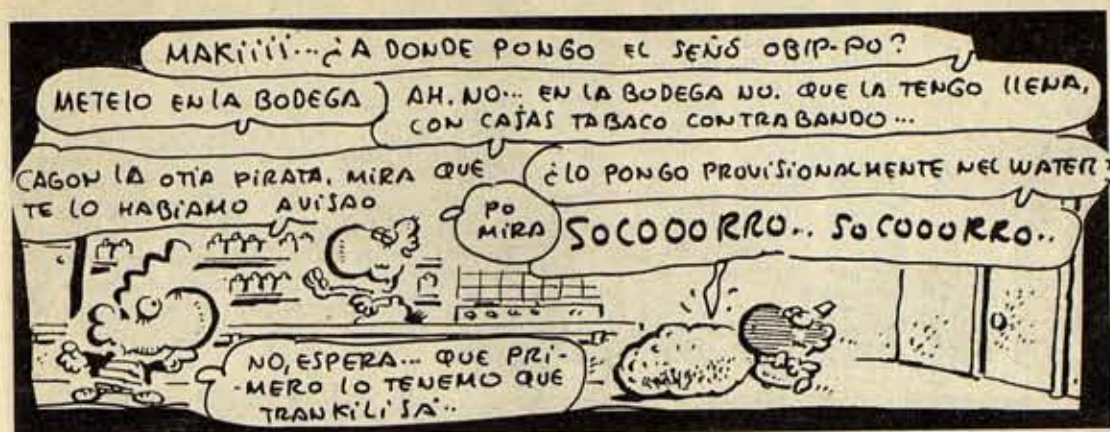 MAKiiiii... ¿A DONDE PONGO EL SEÑÓ OBIP-PO?
METELO EN LA BODEGA
AH. NO... EN LA BODEGA NO. QUE LA TENGO LLENA,
CON CAJAS TABACO CONTRABANDO...
CAGON LA OTIA PIRATA, MIRA QUE
TE LO HABIAMO AVISAO
¿LO PONGO PROVISIONALMENTE NEL WATER?
PO
MIRA
SOCOOORRO.. SOCOOORRO..
NO, ESPERA... QUE PRI-
-MERO LO TENEMO QUE
TRANKILISÁ..